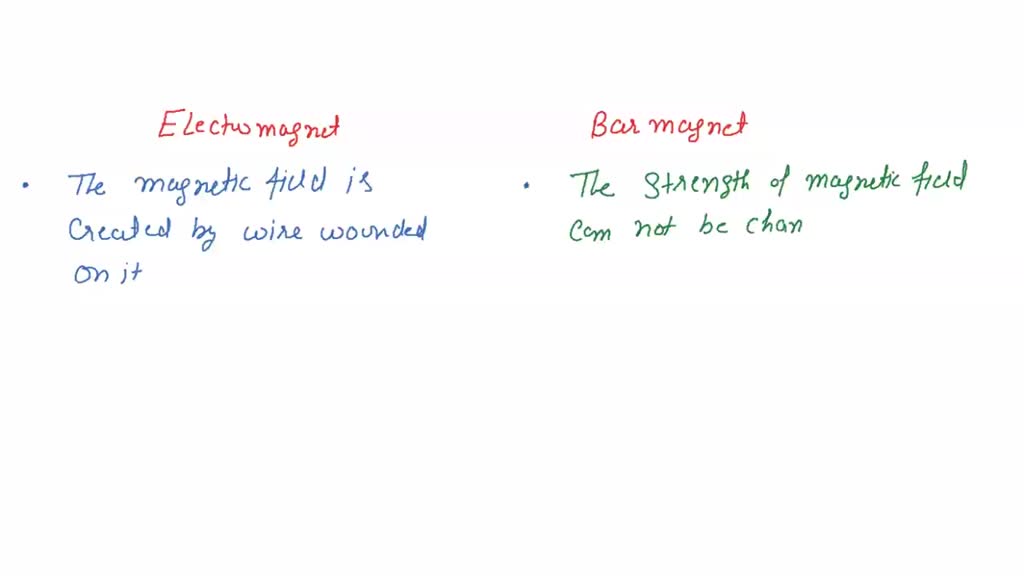 Electromagnet
Bar magnet
• The magnetic field is
created by wire wounded
on it
• The strength of magnetic field
can not be chan